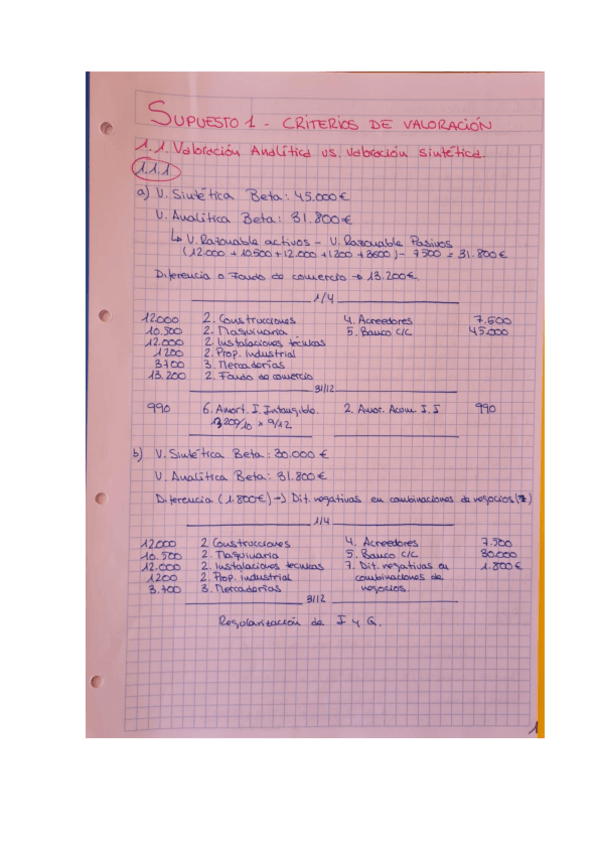 SUPUESTO 1 - CRITERIOS DE VALORACIÓN
1.1. Valoración Analítica vs. Valoración Sintética.
1.1.1
a) V. Sintética Beta: 45.000€
V. Analítica Beta: 31.800€
↳ V. Razonable activos - V. Razonable Pasivos
(12.000 + 10.500 + 12.000 + 1200 + 3600) - 7500 = 31.800€
Diferencia o Fondo de comercio → 13.200€.
1/4
12000 2. Construcciones 4. Acreedores 7.500
10.500 2. Maquinaria 5. Banco C/C 45.000
12.000 2. Instalaciones técnicas
1200 2. Prop. Industrial
3700 3. Mercaderías
13.200 2. Fondo de comercio
31/12
990 6. Amort. I. Intangible. 2. Amor. Acum I.I 990
13200/10 x 9/12
b) V. Sintética Beta: 30.000€
V. Analítica Beta: 31.800€
Diferencia (1.800€) → Dif. negativas en combinaciones de negocios (7)
1/4
12000 2 Construcciones 4. Acreedores 7.500
10.500 2. Maquinaria 5. Banco C/C 30.000
12.000 2. Instalaciones técnicas 7. Dif. negativas en 1.800€
1200 2. Prop. industrial combinaciones de
3.700 3. Mercaderías negocios.
31/12
Regularización de I y G.
1